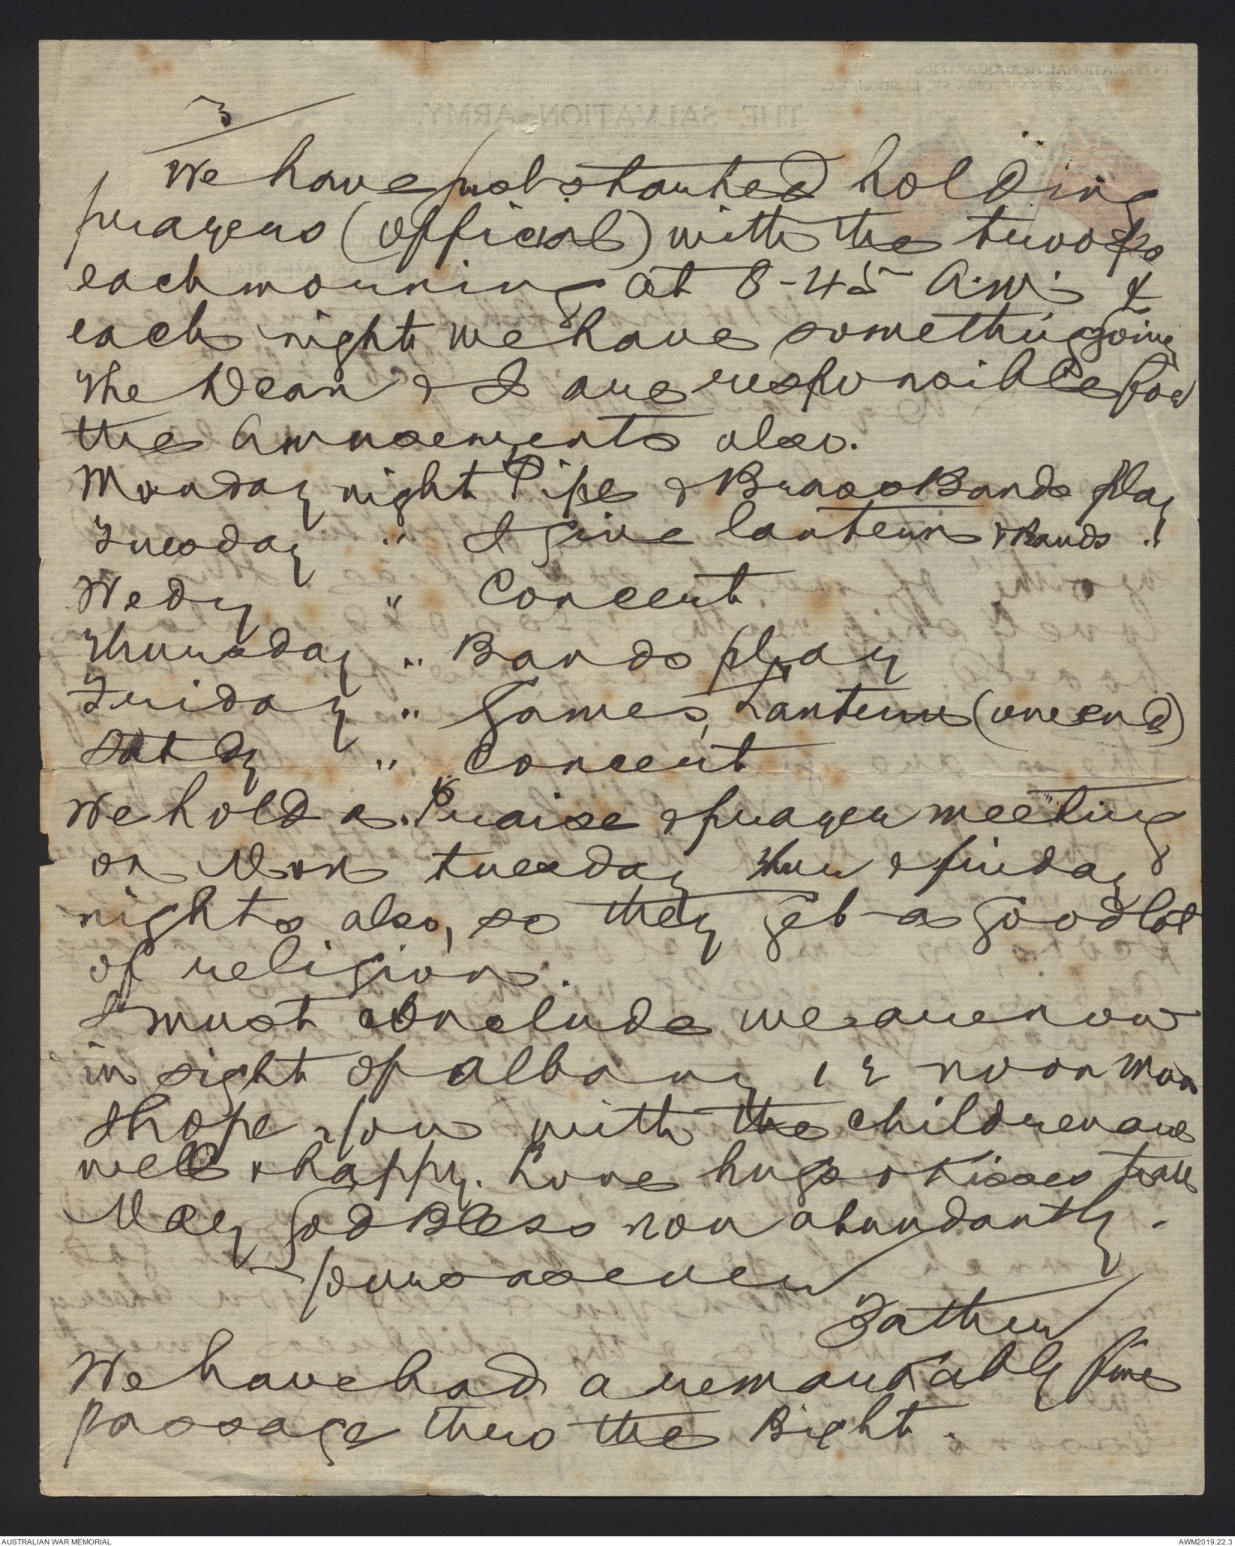 3
We have just started holding
prayers (official) with the troops
each morning at 8-45 A.M. &
each night we have something going
The Dean & I are responsible for
the Amusements also.
Monday night Pipe & Brass Bands play
Tuesday " I give lantern & Bands "
Wedy " Concert
Thursday " Bands play
Friday " Games, Lantern (one end)
Satdy " Concert
We hold a Praise & prayer meeting
on Mon tuesday Thur & friday
nights also, so they get a good lot
of religion.
I must conclude we are now
in sight of Albany 12 noon Mon
I hope you with the children are
well & happy. Love hugs & Kisses to all
May God Bless you abundantly.
Yours as ever
Father
We have had a remarkably fine
passage thro the Bight.
THE SALVATION ARMY.
AUSTRALIAN WAR MEMORIAL
AWM2019.22.3